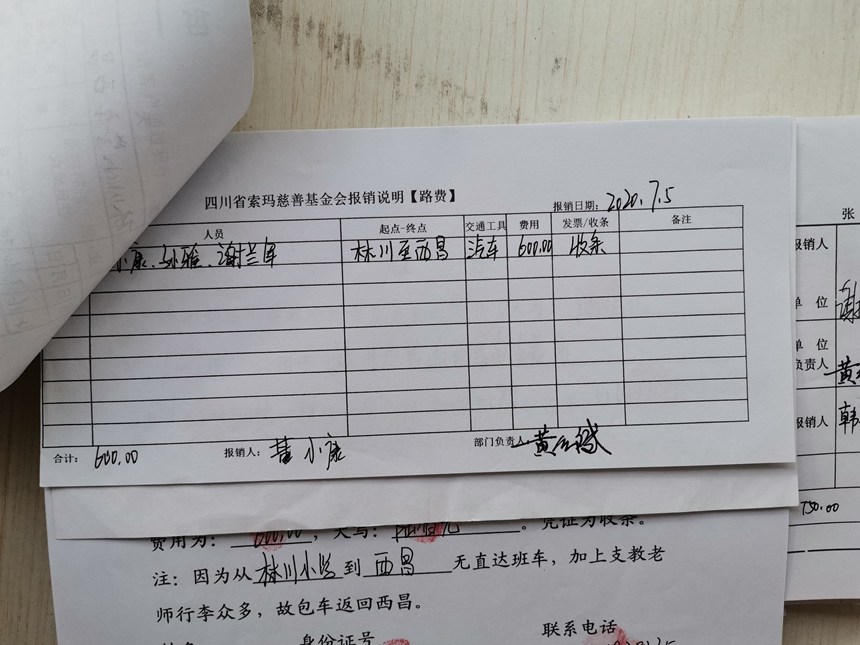 四川省索玛慈善基金会报销说明【路费】
报销日期：2020.7.5
人员 起点-终点 交通工具 费用 发票/收条 备注
小康、孙雅、谢兰 林川至西昌 汽车 600.00 收条
合计：600.00 报销人：董小康 部门负责人：黄红斌
费用为：600.00，大写：陆佰元。凭证为收条。
注：因为从林川小学到西昌无直达班车，加上支教老
师行李众多，故包车返回西昌。
身份证号 联系电话
张
报销人
单 位 谢
单 位
负责人 黄
报销人 韩
750.00